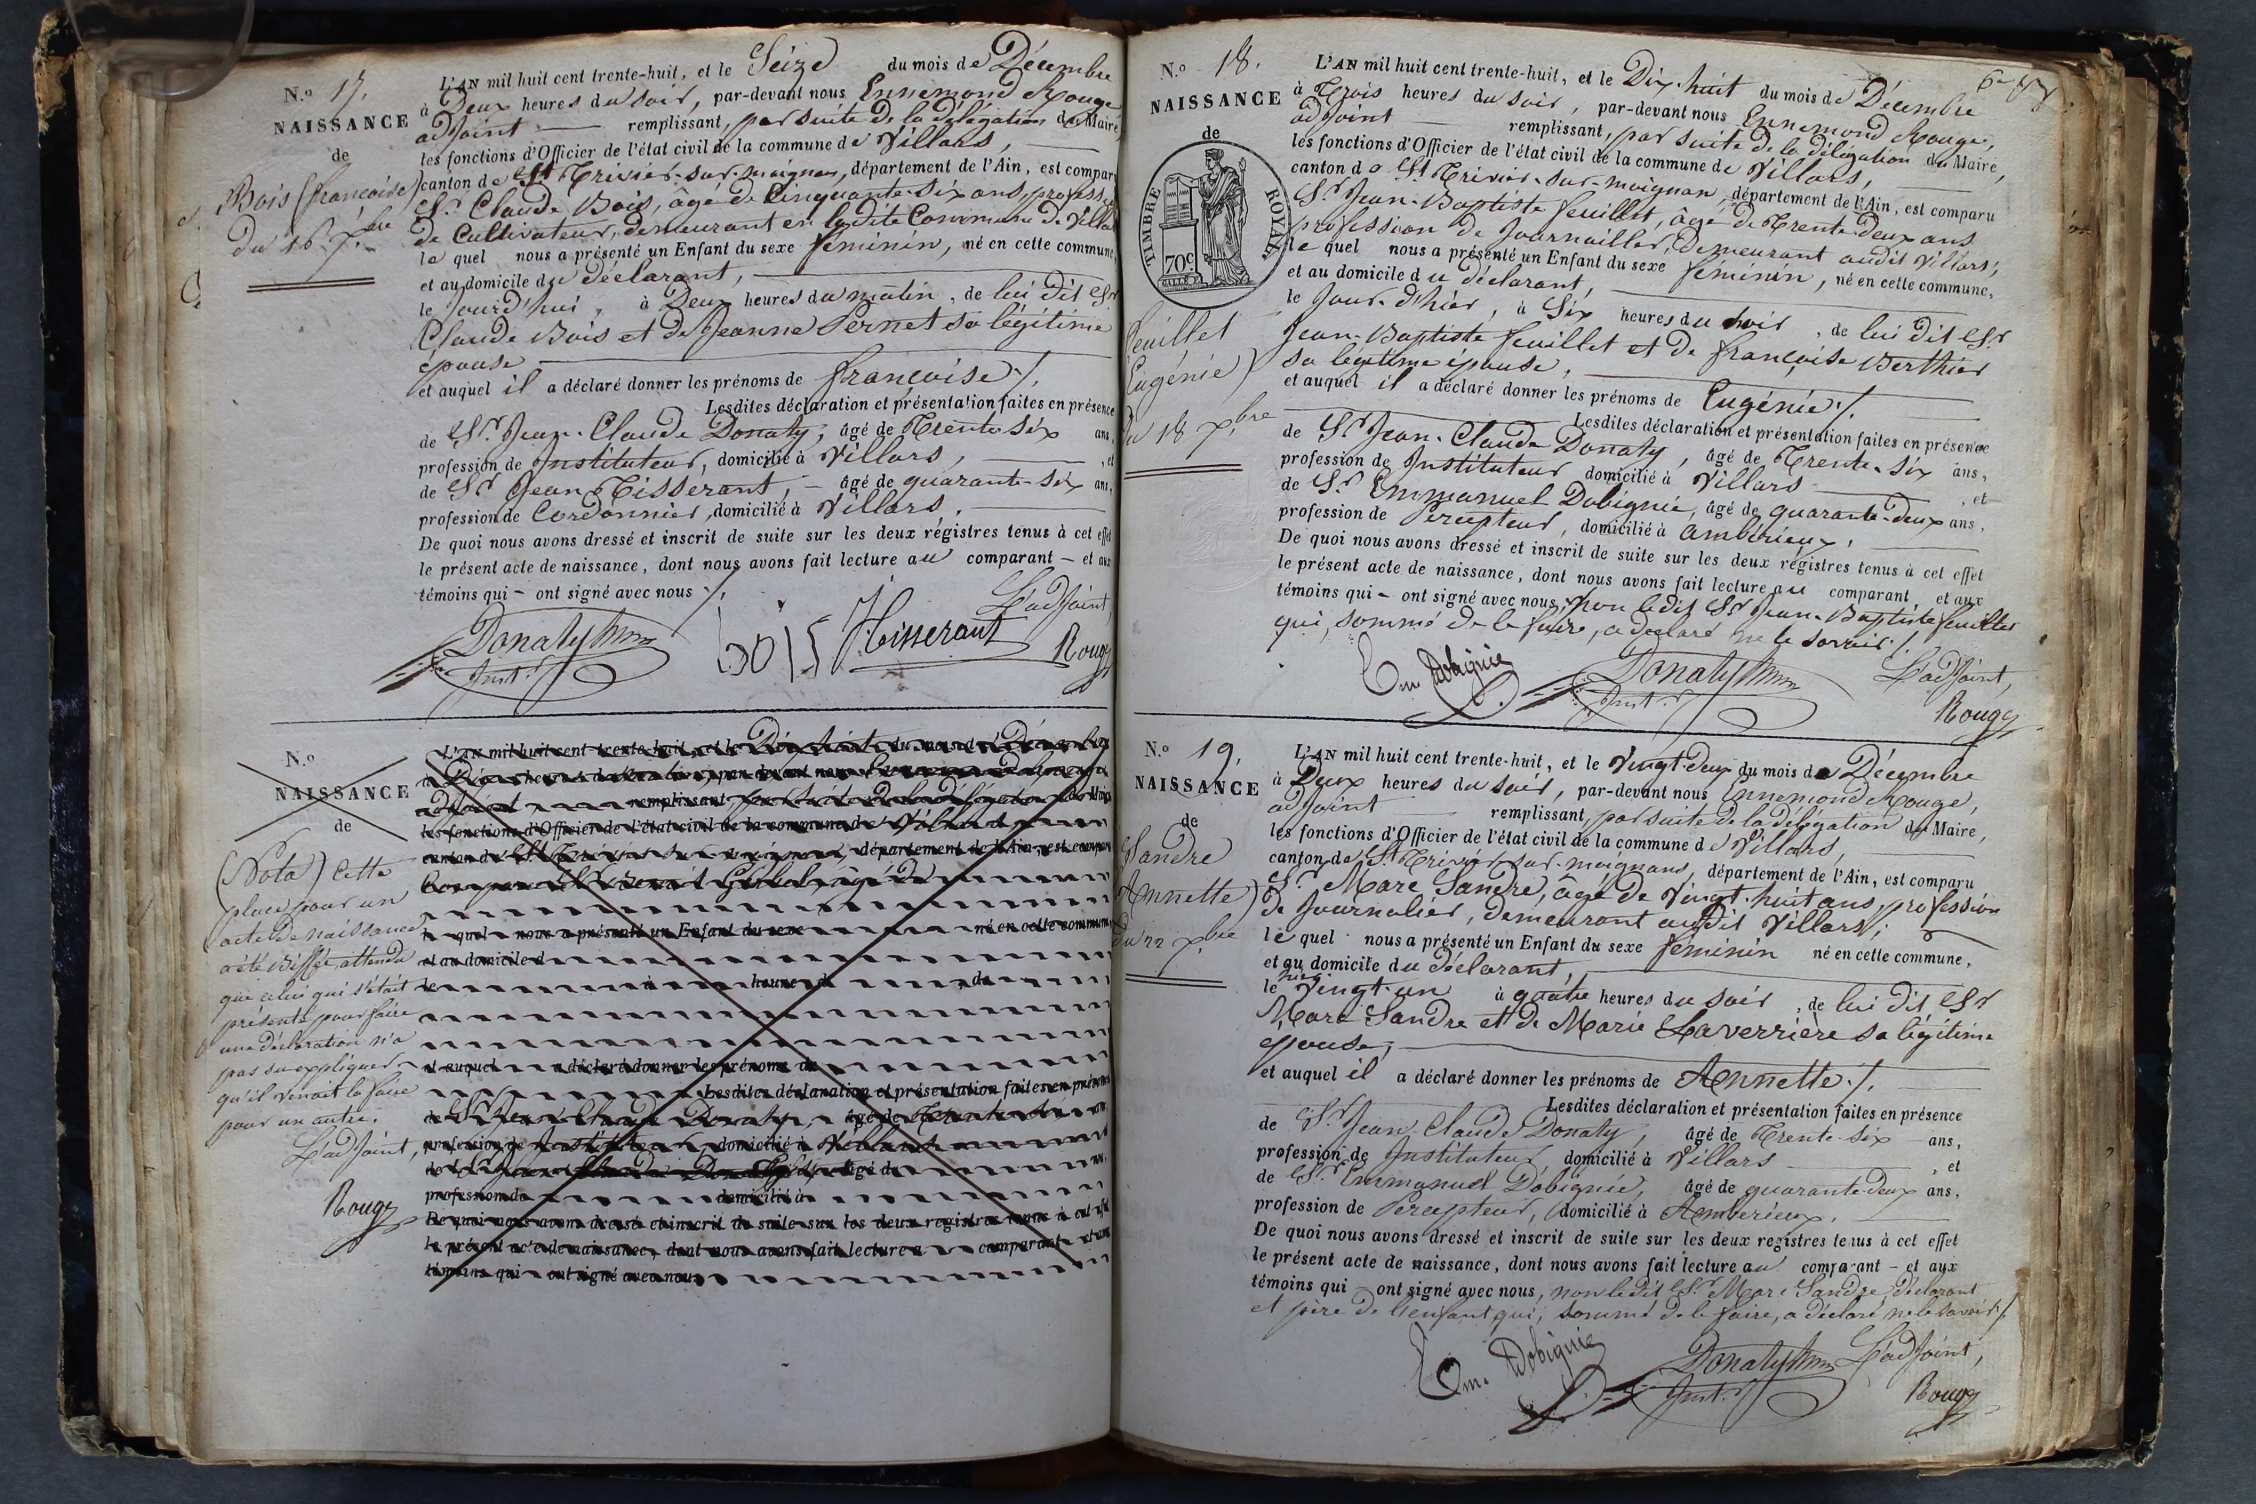 N.º 17.
NAISSANCE
de
Bois (françoise)
du 16 Xbre
L'AN mil huit cent trente-huit, et le Seize du mois de Décembre
à Deux heures du soir, par-devant nous Ennemond Rouge
adjoint remplissant, par suite de la délégation du Maire,
les fonctions d'Officier de l'état civil de la commune de Villars,
canton de St Trivier-sur-moignan, département de l'Ain, est comparu
Sr Claude Bois, âgé de Cinquante-six ans, profession
de Cultivateur, demeurant en la dite Commune de Villars
le quel nous a présenté un Enfant du sexe féminin, né en cette commune,
et au domicile du déclarant,
le Jourd'hui, à Deux heures du matin, de lui dit Sr
Claude Bois et de Jeanne Pernet sa légitime
épouse
et auquel il a déclaré donner les prénoms de françoise ./.
Lesdites déclaration et présentation faites en présence
de Sr Jean-Claude Donaty, âgé de Trente six ans,
profession de Instituteur, domicilié à Villars, et
de Sr Jean Tisserant, âgé de quarante-six ans,
profession de Cordonnier, domicilié à Villars.
De quoi nous avons dressé et inscrit de suite sur les deux régistres tenus à cet effet
le présent acte de naissance, dont nous avons fait lecture au comparant — et aux
témoins qui — ont signé avec nous ./.
L'adjoint,
Donaty
Inst.r
bois
JTisserant
Rouge
N.º
NAISSANCE
de
(Nota) Cette
place pour un
acte de naissance
a été biffée, attendu
que celui qui s'était
présenté pour faire
une déclaration n'a
pas su expliquer
qu'il venait la faire
pour un autre.
L'adjoint,
Rouge
L'AN mil huit cent trente-huit, et le du mois de Décembre
heures du par-devant nous
adjoint remplissant, par suite de la délégation du Maire
les fonctions d'Officier de l'état civil de la commune de Villars
canton de St Trivier sur moignan, département de l'Ain, est comparu
le quel nous a présenté un Enfant du sexe né en cette commune
et au domicile d
le à heures d de
et auquel a déclaré donner les prénoms de
Lesdites déclaration et présentation faites en présence
de Sr Jean Claude Donaty, âgé de Trente six ans
profession de Instituteur, domicilié à Villars
de Sr Jean Claude Donaty, âgé de
profession de domicilié à
De quoi nous avons dressé et inscrit de suite sur les deux registres tenus à cet effet
le présent acte de naissance, dont nous avons fait lecture a comparant et aux
témoins qui ont signé avec nous
N.º 18.
NAISSANCE
de
TIMBRE ROYAL
70c
Feuillet
Eugénie)
du 18 Xbre
L'AN mil huit cent trente-huit, et le Dix-huit du mois de Décembre
à Trois heures du soir, par-devant nous Ennemond Rouge,
adjoint remplissant, par suite de la délégation du Maire,
les fonctions d'Officier de l'état civil de la commune de Villars,
canton de St Trivier-sur-moignan, département de l'Ain, est comparu
Sr Jean-Baptiste feuillet, âgé de Trente Deux ans
profession de Journailler, Demeurant audit Villars;
le quel nous a présenté un Enfant du sexe féminin, né en cette commune,
et au domicile du déclarant,
le Jour-d'hier, à Six heures du soir, de lui dit Sr
Jean-Baptiste feuillet et de françoise Berthier
sa légitime épouse,
et auquel il a déclaré donner les prénoms de Eugénie ./.
Lesdites déclaration et présentation faites en présence
de Sr Jean-Claude Donaty, âgé de Trente-six ans,
profession de Instituteur domicilié à Villars, et
de Sr Emmanuel Dobignie, âgé de quarante-deux ans,
profession de Percepteur, domicilié à ambérieux.
De quoi nous avons dressé et inscrit de suite sur les deux régistres tenus à cet effet
le présent acte de naissance, dont nous avons fait lecture au comparant et aux
témoins qui — ont signé avec nous, non ledit Sr Jean-Baptiste feuillet
qui, sommé de le faire, a déclaré ne le savoir ./.
Em Dobignie
Donaty
Inst.r
L'adjoint,
Rouge
N.º 19.
NAISSANCE
de
Sandre
Annette)
du 22 Xbre
L'AN mil huit cent trente-huit, et le Vingt-Deux du mois de Décembre
à Deux heures du soir, par-devant nous Ennemond Rouge,
adjoint remplissant, par suite de la délégation du Maire,
les fonctions d'Officier de l'état civil de la commune de Villars,
canton de St Trivier-sur-moignans, département de l'Ain, est comparu
Sr Marc Sandre, âgé de Vingt-huit ans, profession
de Journalier, demeurant audit Villars;
le quel nous a présenté un Enfant du sexe féminin né en cette commune,
et au domicile du déclarant,
le hier Vingt-un à quatre heures du soir, de lui dit Sr
Marc Sandre et de Marie Laverrière sa légitime
épouse,
et auquel il a déclaré donner les prénoms de Annette ./.
Lesdites déclaration et présentation faites en présence
de Sr Jean-Claude Donaty, âgé de Trente-six ans,
profession de Instituteur domicilié à Villars, et
de Sr Emmanuel Dobignie, âgé de quarante-deux ans,
profession de Percepteur, domicilié à Amberieux.
De quoi nous avons dressé et inscrit de suite sur les deux registres tenus à cet effet
le présent acte de naissance, dont nous avons fait lecture au comparant — et aux
témoins qui ont signé avec nous, non ledit Sr Marc Sandre, déclarant
et père de l'enfant qui, sommé de le faire, a déclaré ne le savoir ./.
Em. Dobignie
Donaty
Inst.r
L'adjoint,
Rouge